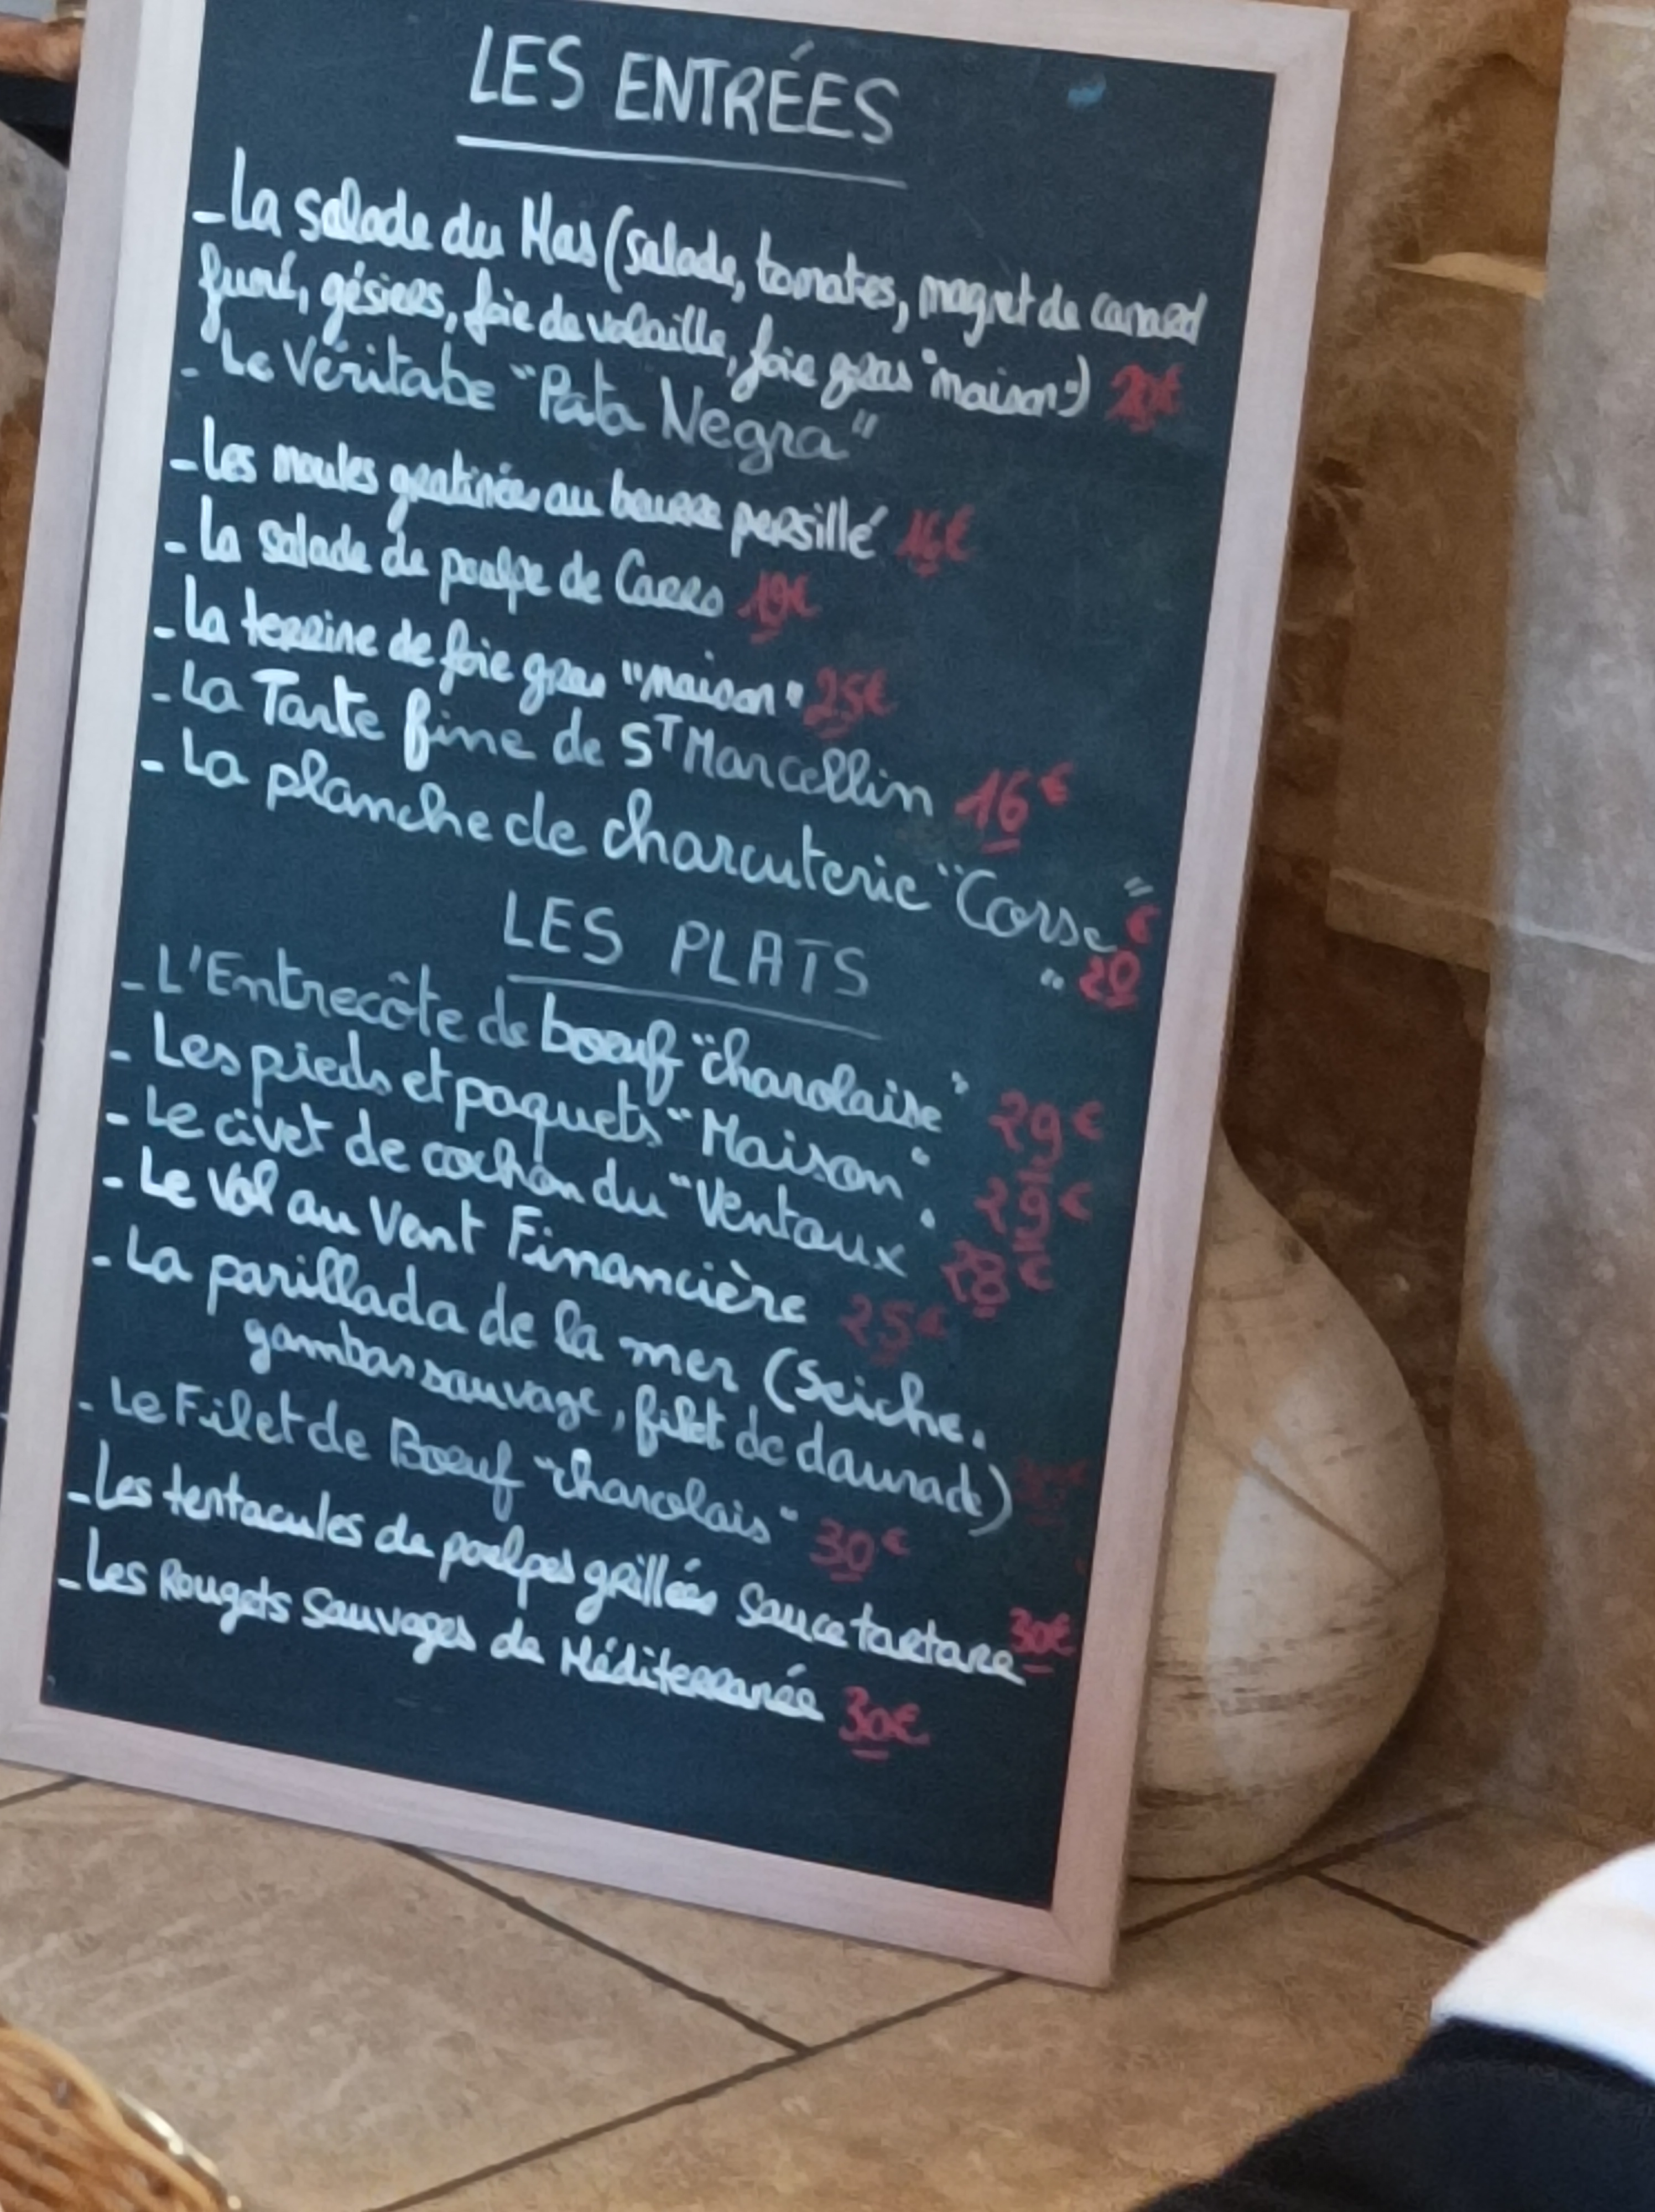 LES ENTRÉES
- La salade du Mas (salade, tomates, magret de canard
fumé, gésiers, foie de volaille, foie gras "maison")
- Le Véritabe "Pata Negra"
- Les moules gratinées au beurre persillé 16€
- La salade de poulpe de Carro 19€
- La terrine de foie gras "maison" 25€
- La Tarte fine de ST Marcellin 16€
- La planche de charcuterie "Corse"
" 20 €
LES PLATS
- L'Entrecôte de boeuf "charolaise" 29€
- Les pieds et paquets "Maison" 29€
- Le civet de cochon du "Ventoux" 28€
- Le Vol au Vent Financière 25€
- La parillada de la mer (Seiche,
gambas sauvage, filet de daurade)
- Le Filet de Boeuf "charolais" 30€
- Les tentacules de poulpes grillées sauce tartare 30€
- Les Rougets Sauvages de Méditerranée 30€